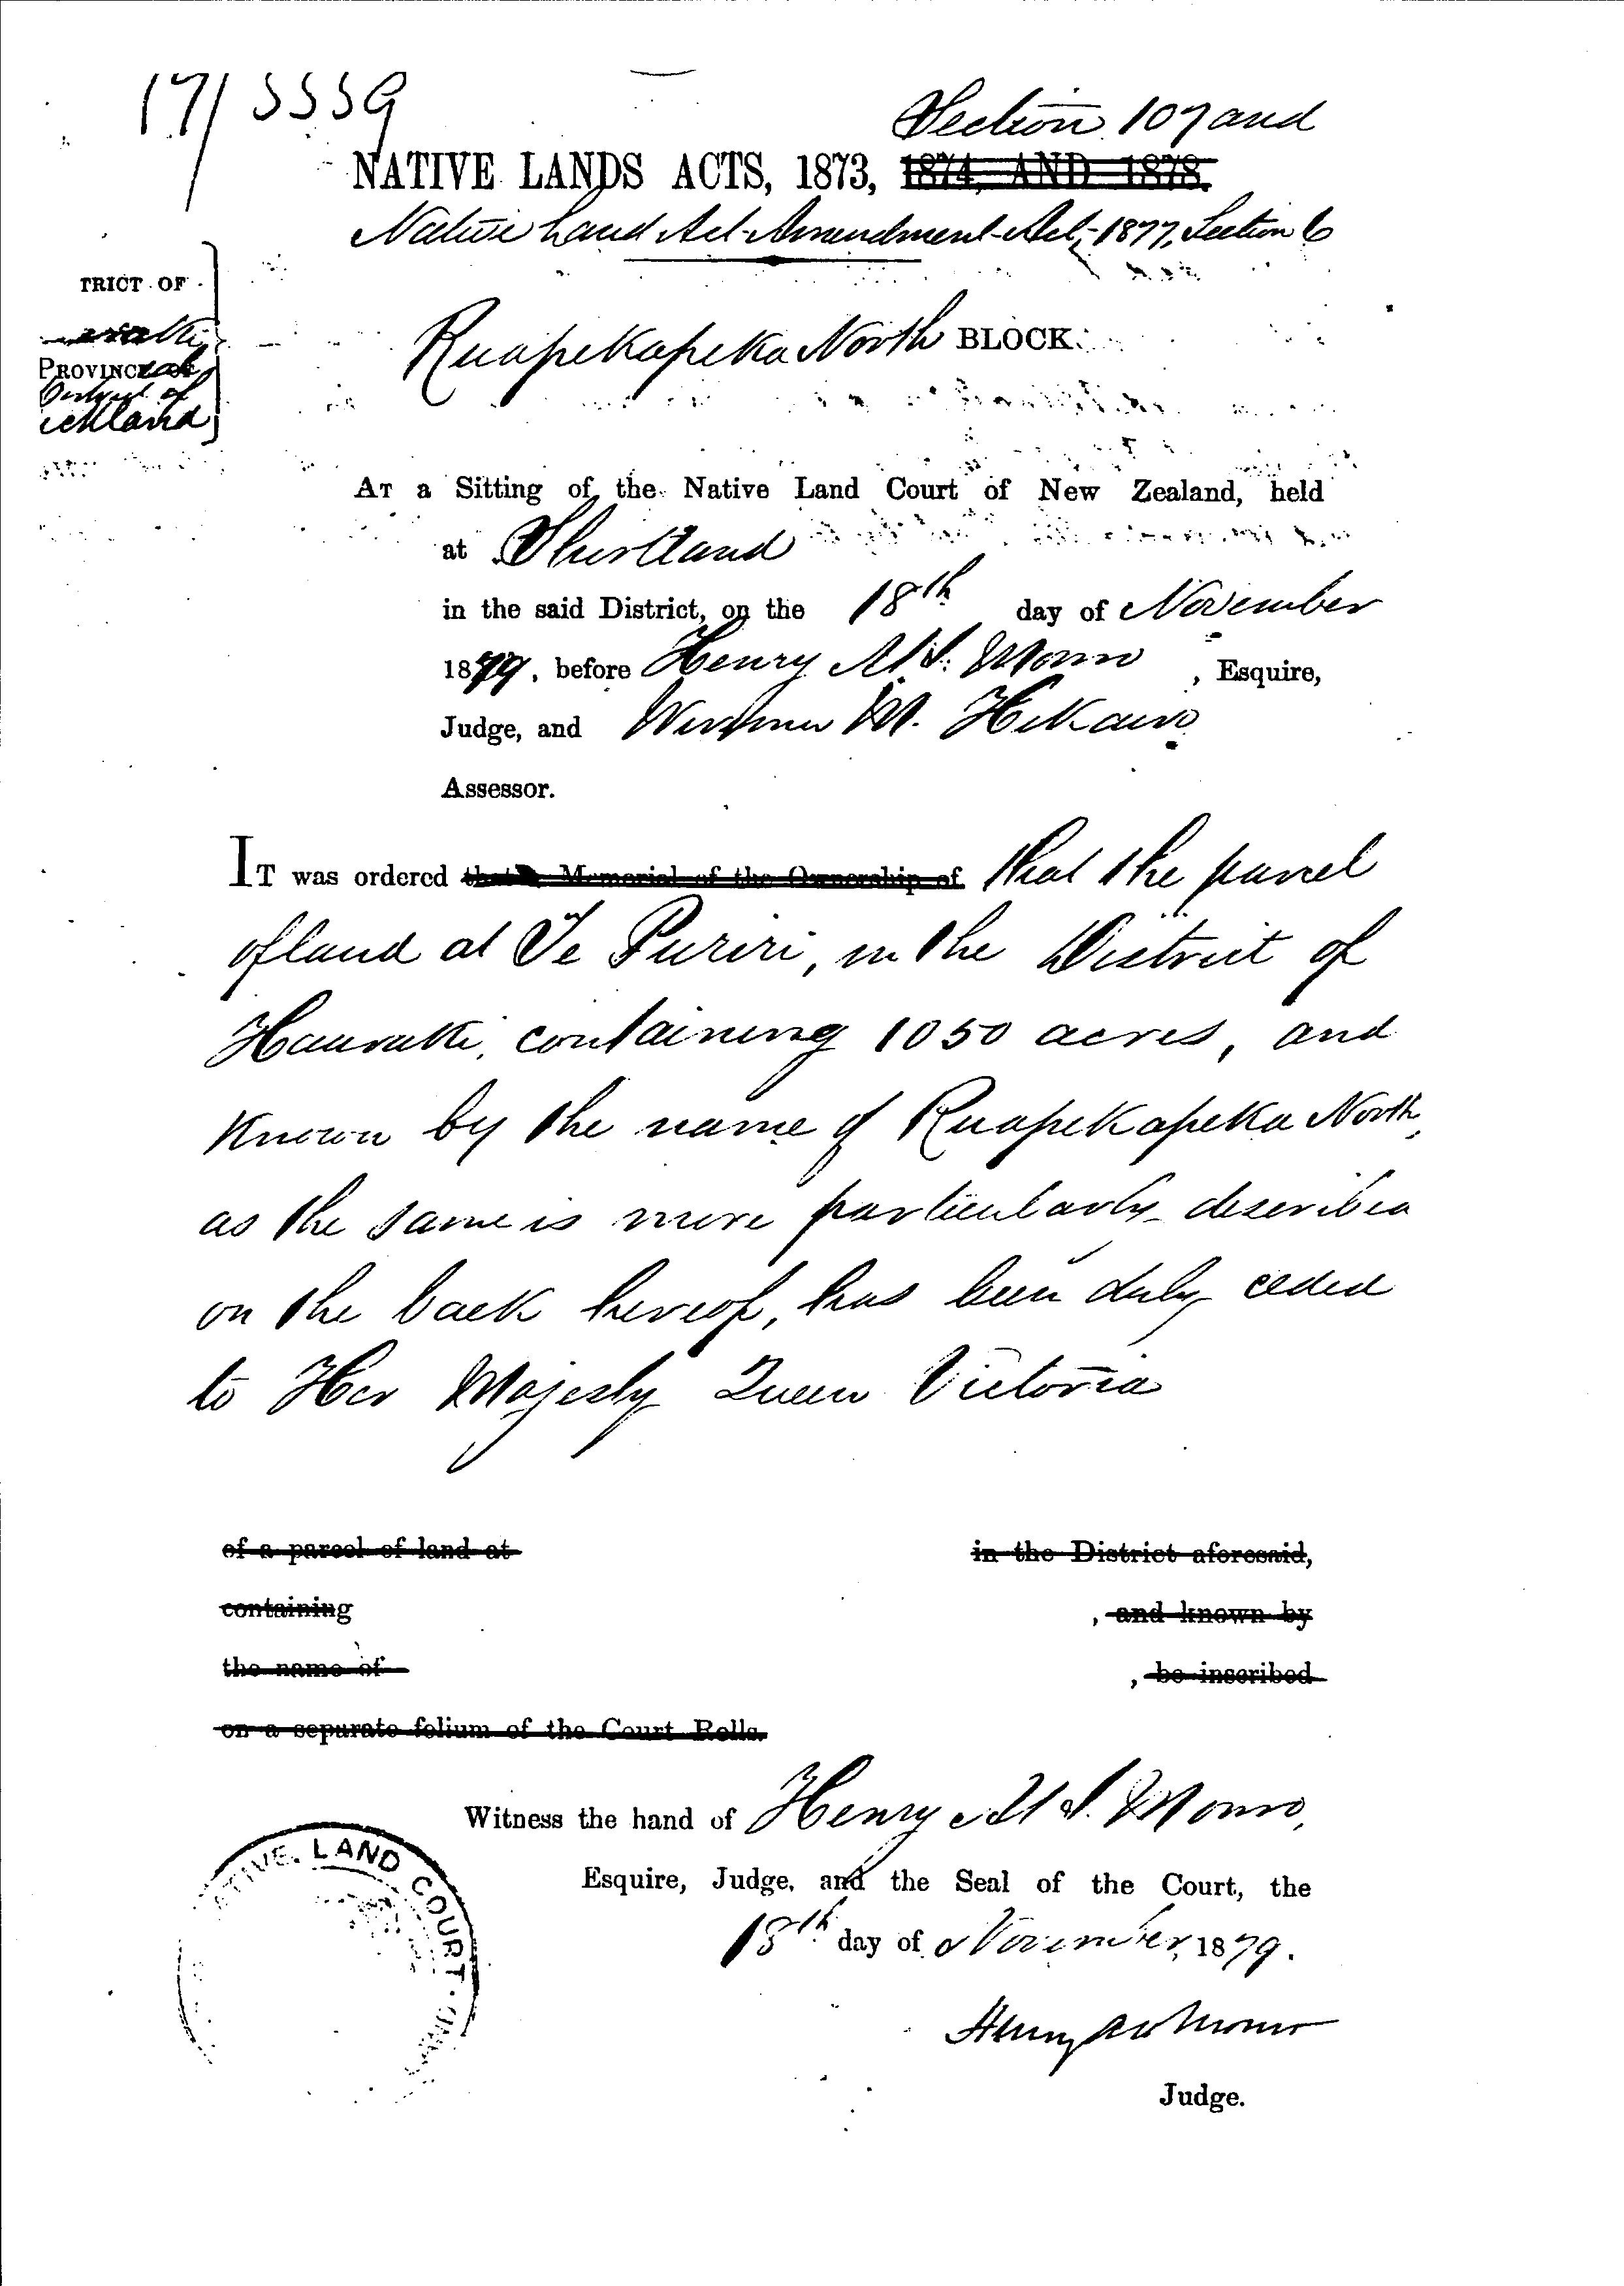 17/3559
Section 107 and
NATIVE LANDS ACTS, 1873, 1874, AND 1878.
Native Land Act Amendment Act, 1877, Section 6
TRICT OF
PROVINCIAL
District of
ckland
Ruapekapeka North BLOCK.
AT a Sitting of the Native Land Court of New Zealand, held
at Shortland
in the said District, on the 18th day of November
1879, before Henry A. H. Monro, Esquire,
Judge, and Wiremu M. Hikairo
Assessor.
IT was ordered that a Memorial of the Ownership of that the parcel
of land at Te Puriri, in the District of
Hauraki, containing 1050 acres, and
known by the name of Ruapekapeka North,
as the same is more particularly described
on the back hereof, has been duly ceded
to Her Majesty Queen Victoria
of a parcel of land at in the District aforesaid,
containing , and known by
the name of , be inscribed
on a separate folium of the Court Rolls.
Witness the hand of Henry A. H. Monro,
Esquire, Judge, and the Seal of the Court, the
18th day of November, 1879.
Henry A H Monro
Judge.
ATIVE LAND COURT